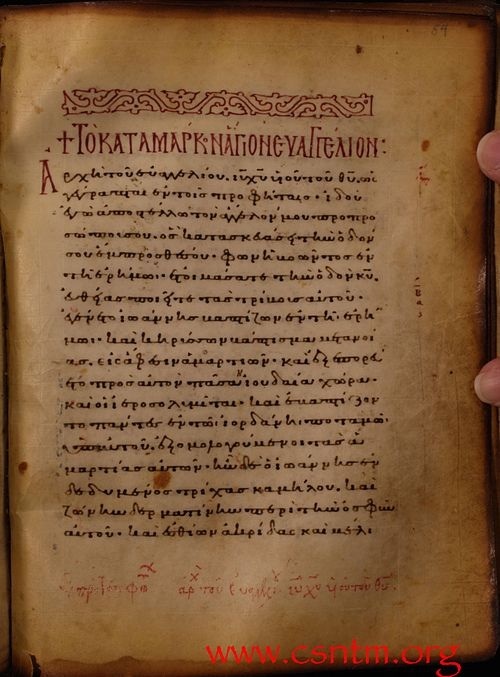 54
+ ΤΟ ΚΑΤΑ ΜΑΡΚΟΝ ἉΓΙΟΝ ΕΥΑΓΓΕΛΙΟΝ:
Ἀρχὴ τοῦ εὐαγγελίου. ιυ χυ υἱοῦ τοῦ θυ. ὡς
γέγραπται ἐν τοῖς προφήταις· ἰδοὺ
ἐγὼ ἀποστέλλω τὸν ἄγγελόν μου πρὸ προ
σώπου σου. ὃς κατασκευάσει τὴν ὁδόν
σου ἔμπροσθέν σου· φωνὴ βοῶντος ἐν
τῇ ἐρήμῳ· ἑτοιμάσατε τὴν ὁδὸν κυ.
εὐθείας ποιεῖτε τὰς τρίβους αὐτοῦ·
ἐγένετο ἰωάννης βαπτίζων ἐν τῇ ἐρή
μῳ· καὶ κηρύσσων βάπτισμα μετανοί
ας. εἰς ἄφεσιν ἁμαρτιῶν· καὶ ἐξεπορεύ
ετο πρὸς αὐτὸν πᾶσα ἡ ἰουδαία χώρα·
καὶ οἱ ἱεροσολυμῖται· καὶ ἐβαπτίζον
το πάντες ἐν τῷ ἰορδάνῃ ποταμῷ·
ὑπ' αὐτοῦ. ἐξομολογούμενοι τὰς ἁ
μαρτίας αὐτῶν· ἦν δὲ ὁ ἰωάννης ἐν
δεδυμένος τρίχας καμήλου. καὶ
ζώνην δερματίνην περὶ τὴν ὀσφὺν
αὐτοῦ. καὶ ἐσθίων ἀκρίδας καὶ μέλι
ἀρχ τοῦ εὐαγγελίου ιυ χυ υἱοῦ τοῦ θυ
www.csntm.org